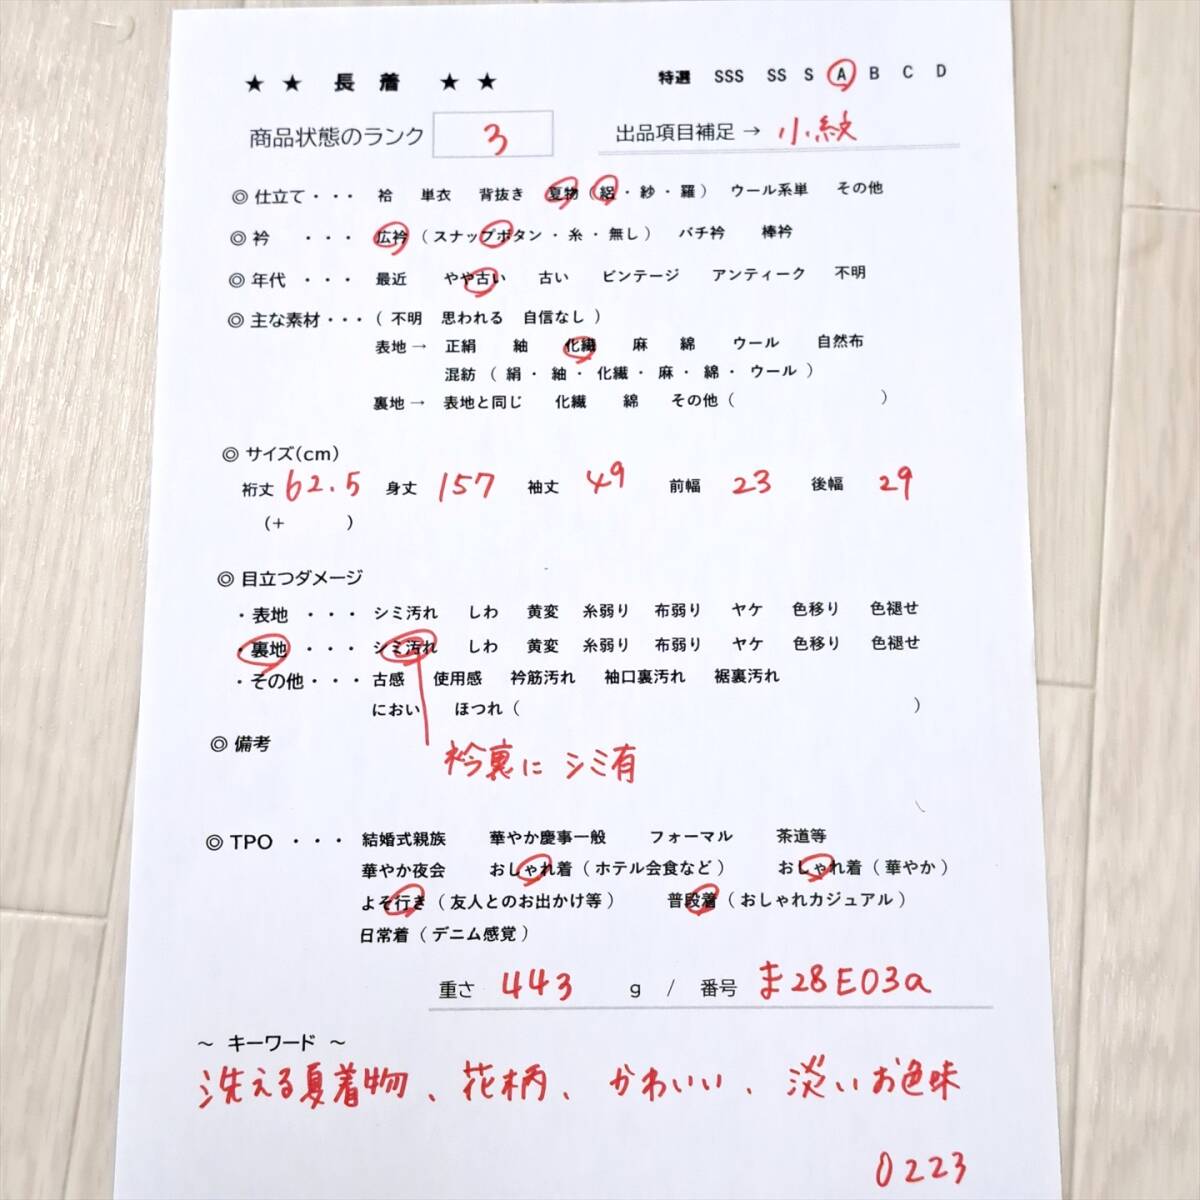 ★ ★ 長 着 ★ ★ 特選 SSS SS S A B C D
商品状態のランク 3 出品項目補足 → 小紋
◎ 仕立て・・・ 袷 単衣 背抜き 夏物 ( 絽 ・ 紗 ・ 羅 ) ウール系単 その他
◎ 衿 ・・・ 広衿 ( スナップボタン ・ 糸 ・ 無し ) バチ衿 棒衿
◎ 年代 ・・・ 最近 やや古い 古い ビンテージ アンティーク 不明
◎ 主な素材・・・ ( 不明 思われる 自信なし )
表地 → 正絹 紬 化繊 麻 綿 ウール 自然布
混紡 ( 絹 ・ 紬 ・ 化繊 ・ 麻 ・ 綿 ・ ウール )
裏地 → 表地と同じ 化繊 綿 その他 ( )
◎ サイズ(cm)
裄丈 62.5 身丈 157 袖丈 49 前幅 23 後幅 29
(+ )
◎ 目立つダメージ
・表地 ・・・ シミ汚れ しわ 黄変 糸弱り 布弱り ヤケ 色移り 色褪せ
・裏地 ・・・ シミ汚れ しわ 黄変 糸弱り 布弱り ヤケ 色移り 色褪せ
・その他・・・ 古感 使用感 衿筋汚れ 袖口裏汚れ 裾裏汚れ
におい ほつれ ( )
◎ 備考
衿裏に シミ有
◎ TPO ・・・ 結婚式親族 華やか慶事一般 フォーマル 茶道等
華やか夜会 おしゃれ着 ( ホテル会食など ) おしゃれ着 ( 華やか )
よそ行き ( 友人とのお出かけ等 ) 普段着 ( おしゃれカジュアル )
日常着 ( デニム感覚 )
重さ 443 g / 番号 ま28E03a
～ キーワード ～
洗える夏着物、花柄、かわいい、淡いお色味
0223